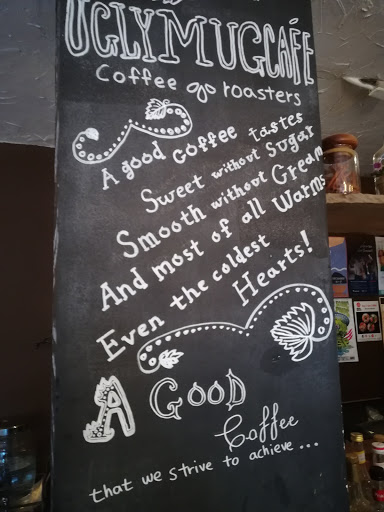 UGLYMUGCAFE
Coffee roasters
A good coffee tastes
Sweet without Sugar
Smooth without Cream
And most of all Warms
Even the coldest
Hearts!
A GOOD
Coffee
that we strive to achieve ...